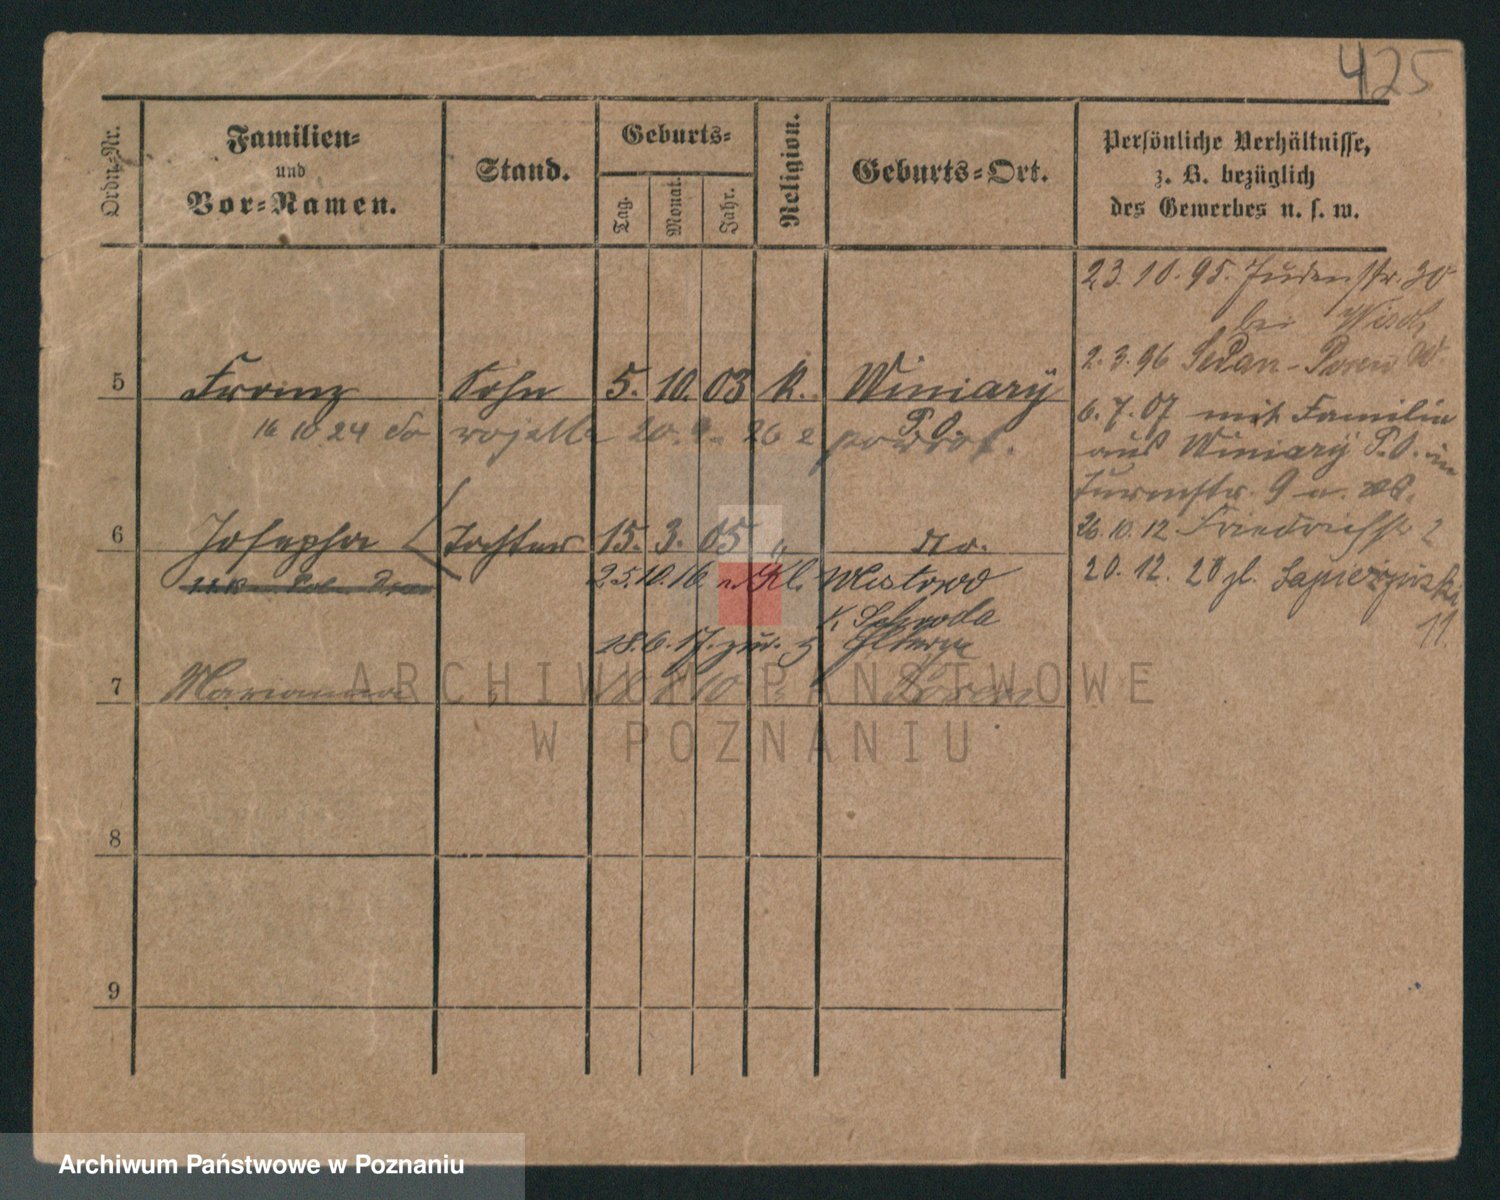 425
Ordn.=Nr.
Familien=
und
Vor=Namen.
Stand.
Geburts=
Tag.
Monat.
Jahr.
Religion.
Geburts=Ort.
Persönliche Verhältnisse,
z. B. bezüglich
des Gewerbes u. s. w.
23.10.95. Judenstr. 30
bei
2.3.96 Sedan-
5 Franz Sohn 5. 10. 03 K. Winiary
P. O.
16 10 24 do wojska 20. 26 powrót.
6.7.07 mit Familie
aus Winiary P.O. in
Turmstr. 9
26.10.12 Friedrichstr 2
20.12.20 zl. Sapieżyńska
11.
6 Josepha Tochter 15. 3. 05 " do.
25.10.16 n. Kl.
K. Schroda
18.6.17. zur. z. Eltern
7 Marianna 18 8 10 Posen
8
9
ARCHIWUM PAŃSTWOWE
W POZNANIU
Archiwum Państwowe w Poznaniu